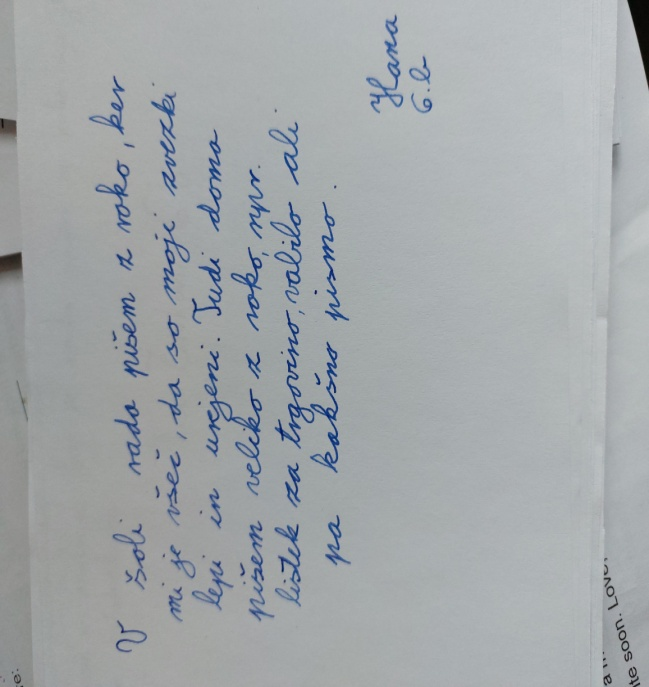 V šoli rada pišem z roko, ker
mi je všeč, da so moji zvezki
lepi in urejeni. Tudi doma
pišem veliko z roko, npr.
listek za trgovino, vabilo ali
pa kakšno pismo.
Hana
6.b
ite soon. Love,